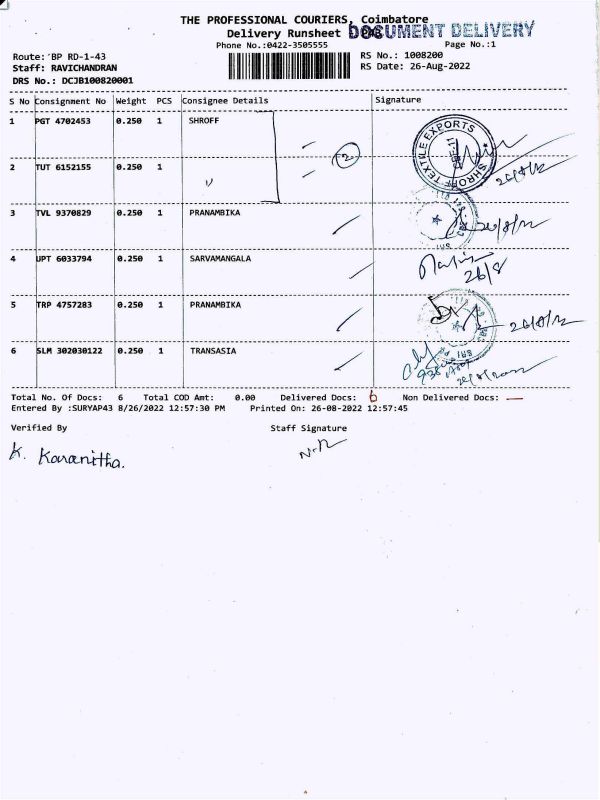 THE PROFESSIONAL COURIERS, Coimbatore
Delivery Runsheet
DOCUMENT DELIVERY
Phone No.:0422-3505555
Page No.:1
Route: BP RD-1-43
RS No.: 1008200
Staff: RAVICHANDRAN
RS Date: 26-Aug-2022
DRS No.: DCJB100820001
S No Consignment No Weight PCS Consignee Details Signature
1 PGT 4702453 0.250 1 SHROFF
TEXTILE EXPORTS SHROFF
2 TUT 6152155 0.250 1 〃
2
3 TVL 9370829 0.250 1 PRANAMBIKA
4 UPT 6033794 0.250 1 SARVAMANGALA
26/8
5 TRP 4757283 0.250 1 PRANAMBIKA
6 SLM 302030122 0.250 1 TRANSASIA
Total No. Of Docs: 6 Total COD Amt: 0.00 Delivered Docs: 6 Non Delivered Docs: —
Entered By :SURYAP43 8/26/2022 12:57:30 PM Printed On: 26-08-2022 12:57:45
Verified By Staff Signature
K. Karanitha.